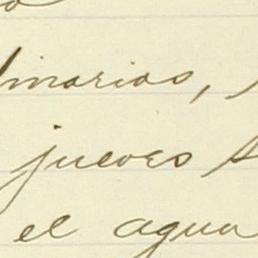 inarias,
jueves
el agua